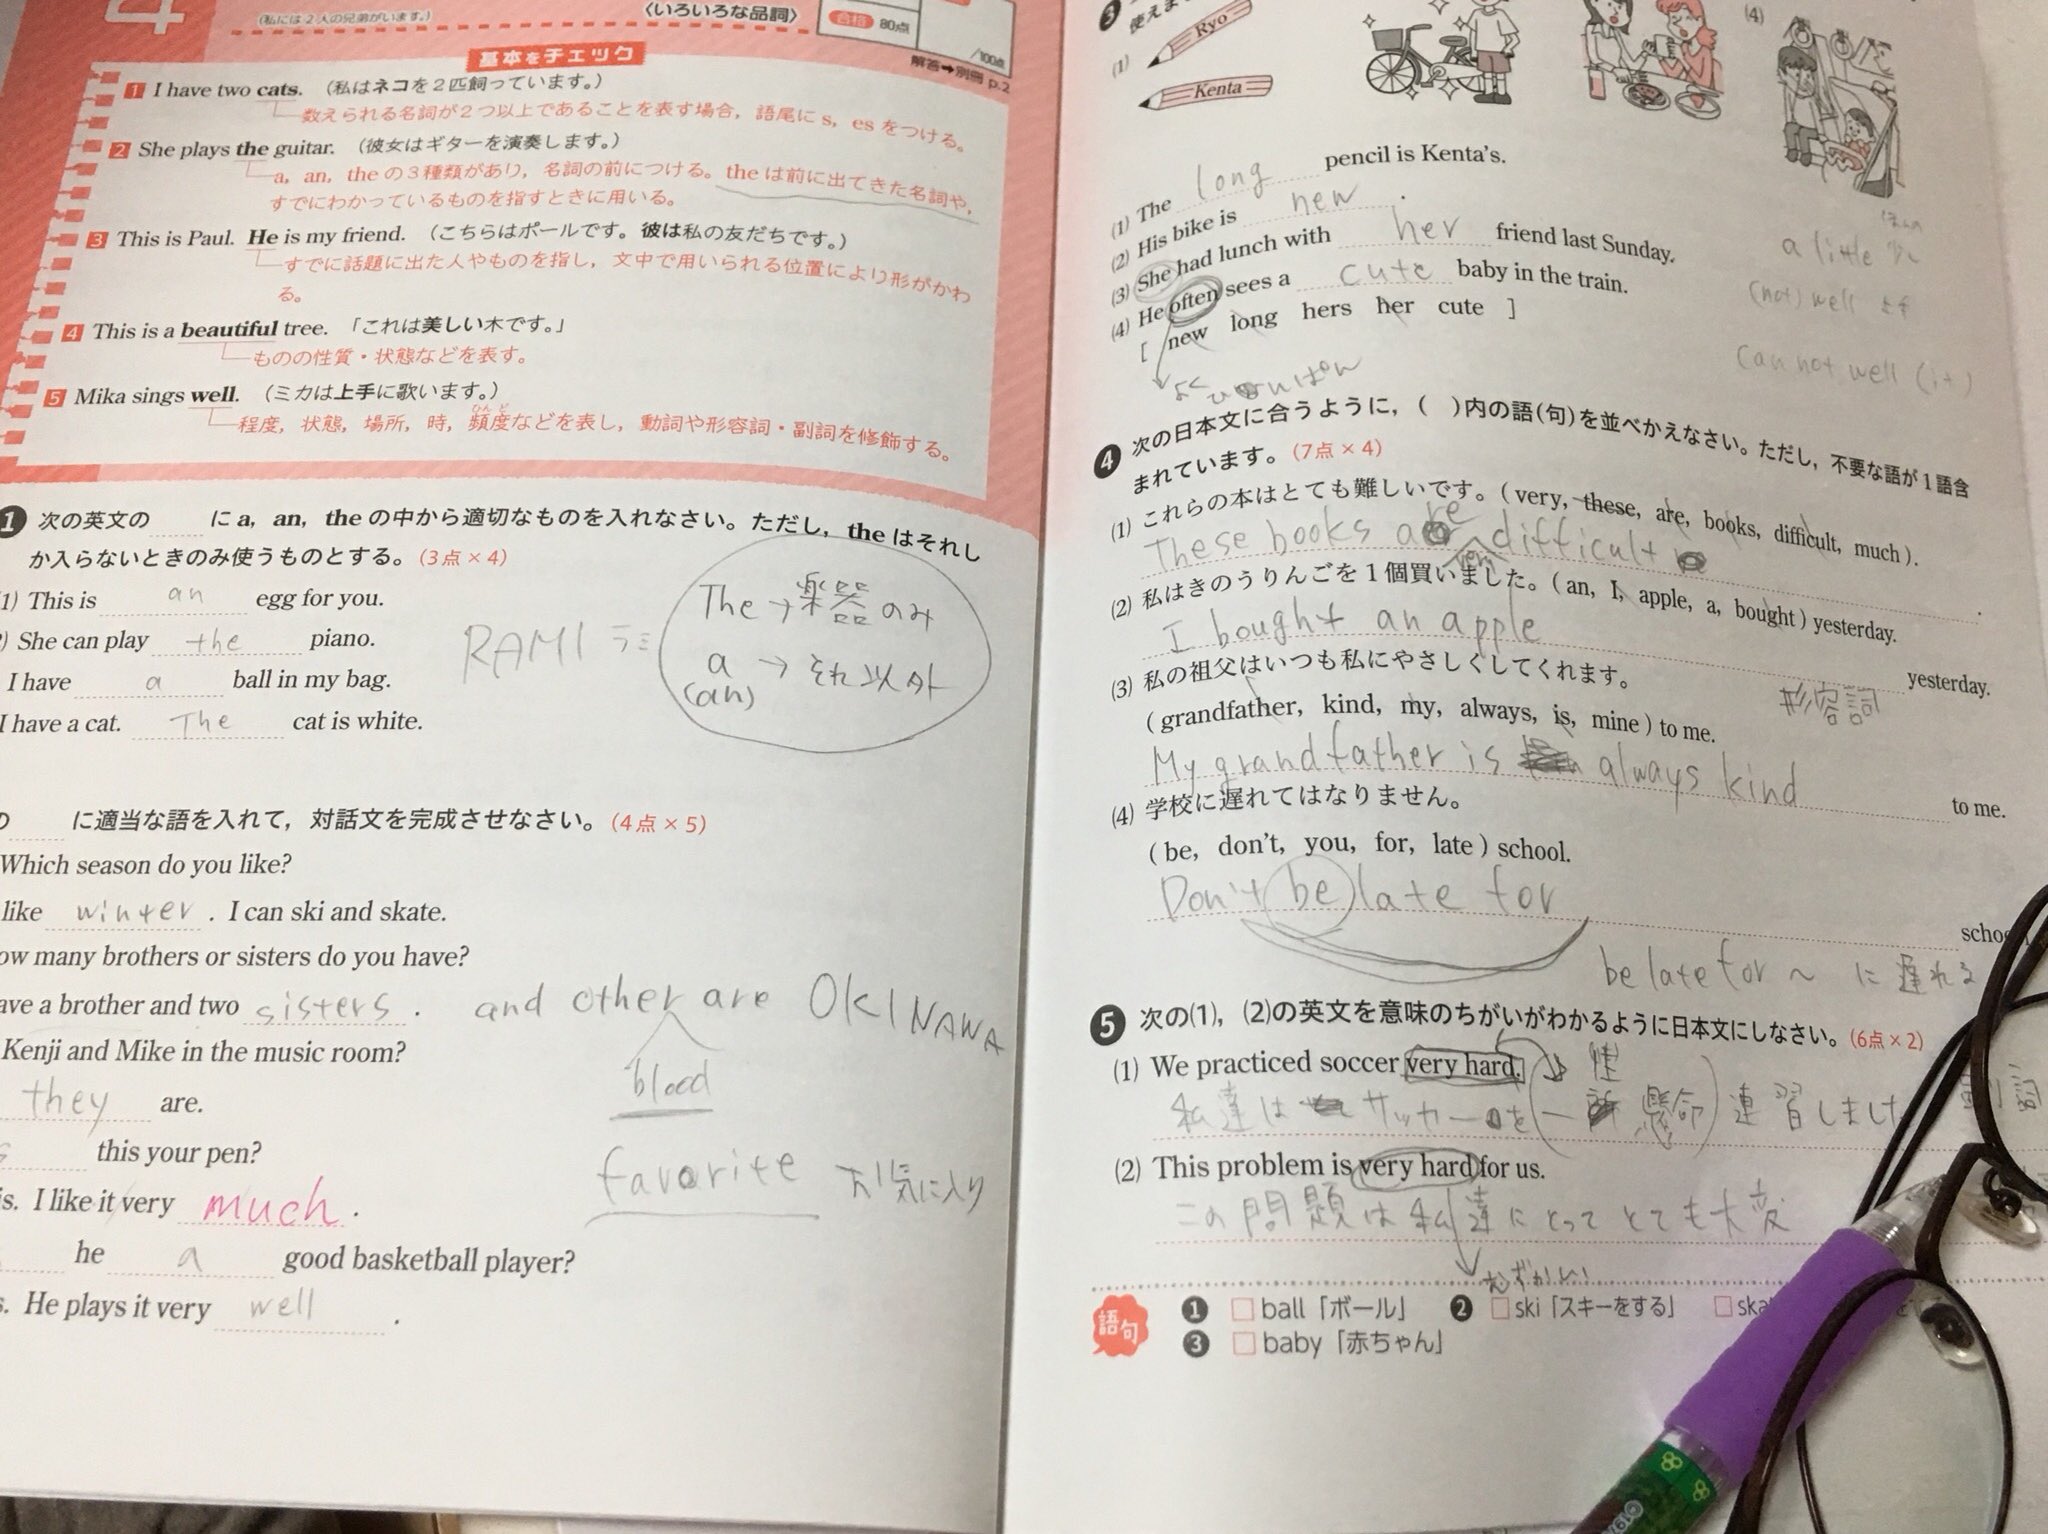 4
(私には2人の兄弟がいます。)
〈いろいろな品詞〉
合格 80点
/100点
解答➡別冊 p.2
基本をチェック
1 I have two cats. (私はネコを2匹飼っています。)
数えられる名詞が2つ以上であることを表す場合，語尾にs，esをつける。
2 She plays the guitar. (彼女はギターを演奏します。)
a，an，theの3種類があり，名詞の前につける。theは前に出てきた名詞や，
すでにわかっているものを指すときに用いる。
3 This is Paul. He is my friend. (こちらはポールです。彼は私の友だちです。)
すでに話題に出た人やものを指し，文中で用いられる位置により形がかわ
る。
4 This is a beautiful tree. 「これは美しい木です。」
ものの性質・状態などを表す。
5 Mika sings well. (ミカは上手に歌います。)
程度，状態，場所，時，頻度などを表し，動詞や形容詞・副詞を修飾する。
ひんど
1 次の英文の に a，an，the の中から適切なものを入れなさい。ただし，the はそれし
か入らないときのみ使うものとする。(3点×4)
1) This is an egg for you.
) She can play the piano.
I have a ball in my bag.
I have a cat. The cat is white.
RAMI ラミ
The → 楽器のみ
a → それ以外
(an)
に適当な語を入れて，対話文を完成させなさい。(4点×5)
Which season do you like?
like winter . I can ski and skate.
ow many brothers or sisters do you have?
ave a brother and two sisters .
and other are OKINAWA
blood
Kenji and Mike in the music room?
they are.
s this your pen?
favorite お気に入り
is. I like it very much .
he a good basketball player?
s. He plays it very well .
3
使えま
(1) Ryo
Kenta
(4)
(1) The long pencil is Kenta's.
(2) His bike is new .
(3) She had lunch with her friend last Sunday.
(4) He often sees a cute baby in the train.
[ new long hers her cute ]
a little 少
(not) well
can not well (it)
4 次の日本文に合うように，( )内の語(句)を並べかえなさい。ただし，不要な語が1語含
まれています。(7点×4)
(1) これらの本はとても難しいです。( very, these, are, books, difficult, much ).
These books are very difficult .
(2) 私はきのうりんごを1個買いました。( an, I, apple, a, bought ) yesterday.
I bought an apple yesterday.
(3) 私の祖父はいつも私にやさしくしてくれます。
形容詞
( grandfather, kind, my, always, is, mine ) to me.
My grandfather is always kind to me.
(4) 学校に遅れてはなりません。
( be, don't, you, for, late ) school.
Don't be late for schoo
be late for ～ に遅れる
5 次の(1)，(2)の英文を意味のちがいがわかるように日本文にしなさい。(6点×2)
(1) We practiced soccer very hard.
私達はサッカーを一所懸命練習しまし
(2) This problem is very hard for us.
この問題は私達にとってとても大変
むずかしい
語句
1 ball「ボール」 2 ski「スキーをする」 ska
3 baby「赤ちゃん」